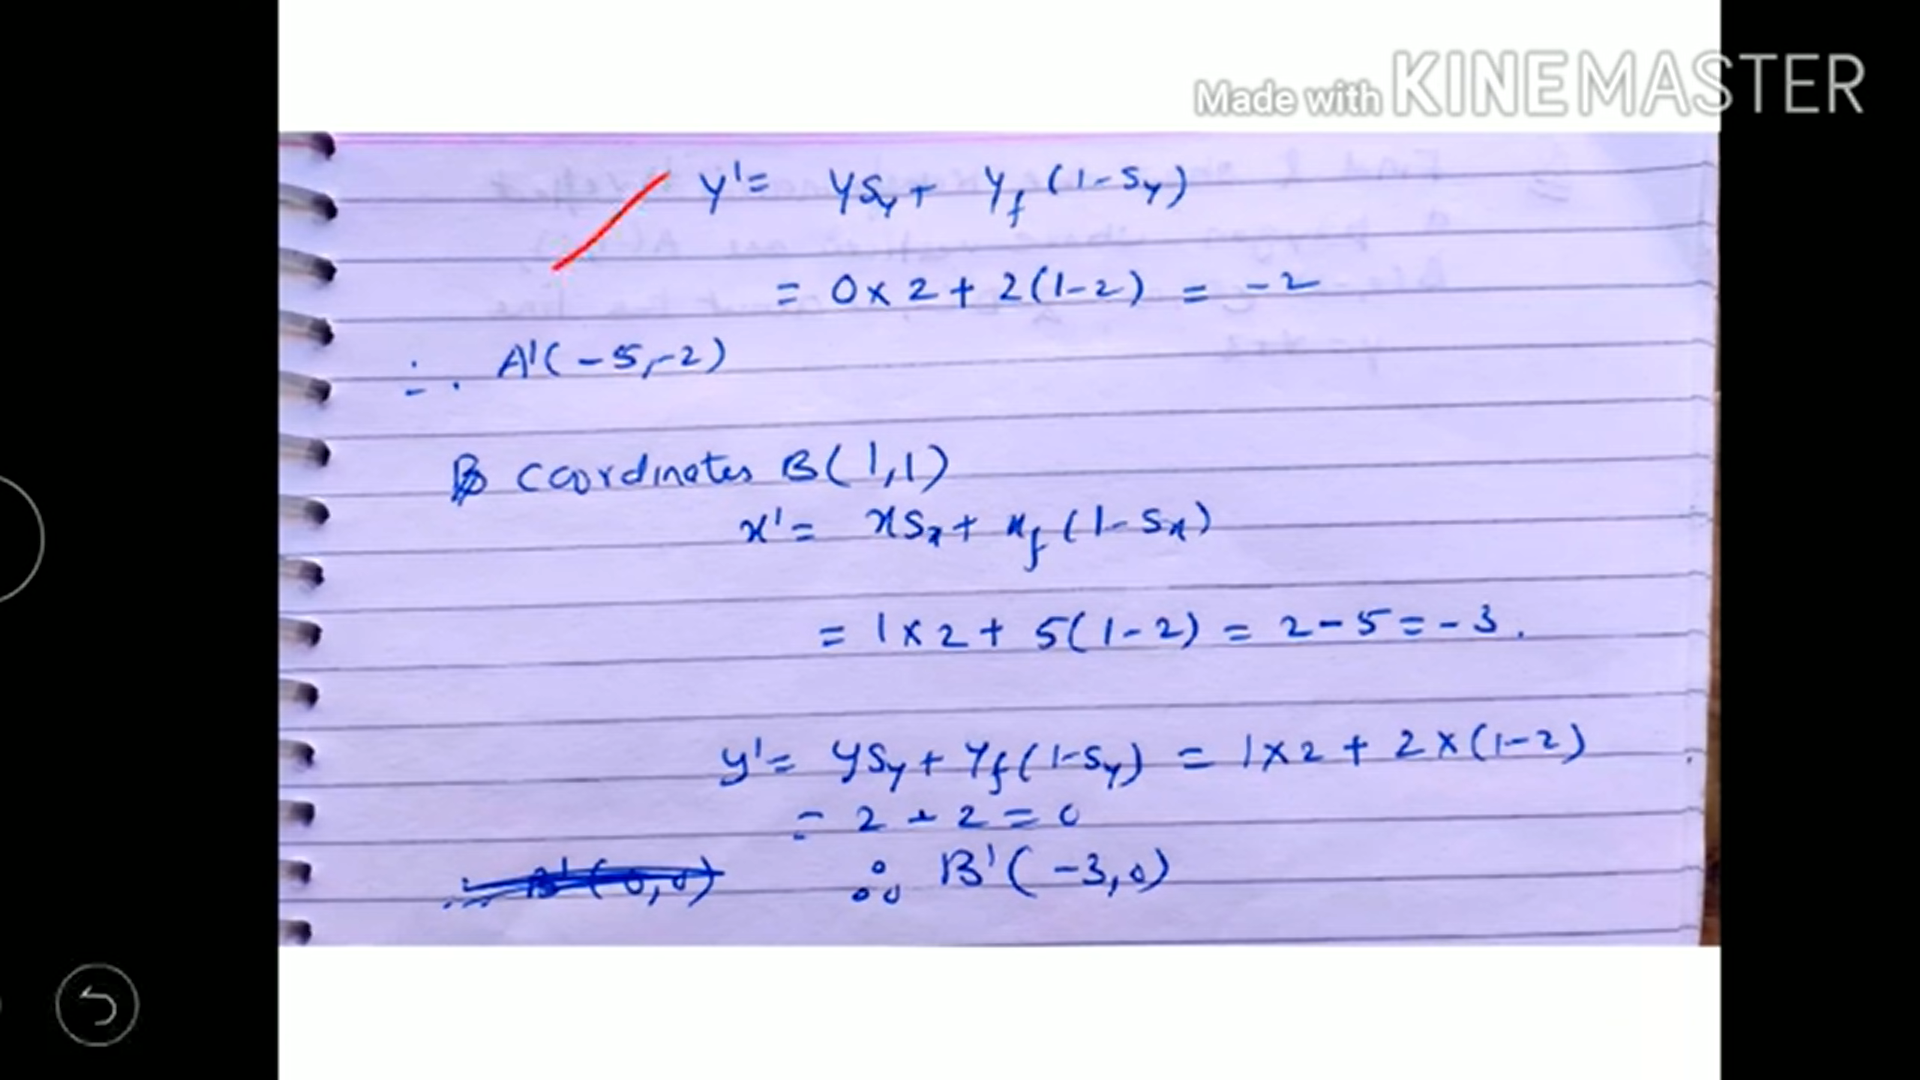 Made with KINEMASTER
y'= ySy + yf (1-Sy)
= 0x2+2(1-2) = -2
∴ A'(-5,-2)
B coordinates B(1,1)
x'= xSx+ xf (1-Sx)
= 1x2+ 5(1-2) = 2-5=-3.
y'= ySy+ yf(1-Sy) = 1x2+ 2x(1-2)
= 2 - 2 = 0
∴ B'(0,0) ∴ B'(-3,0)